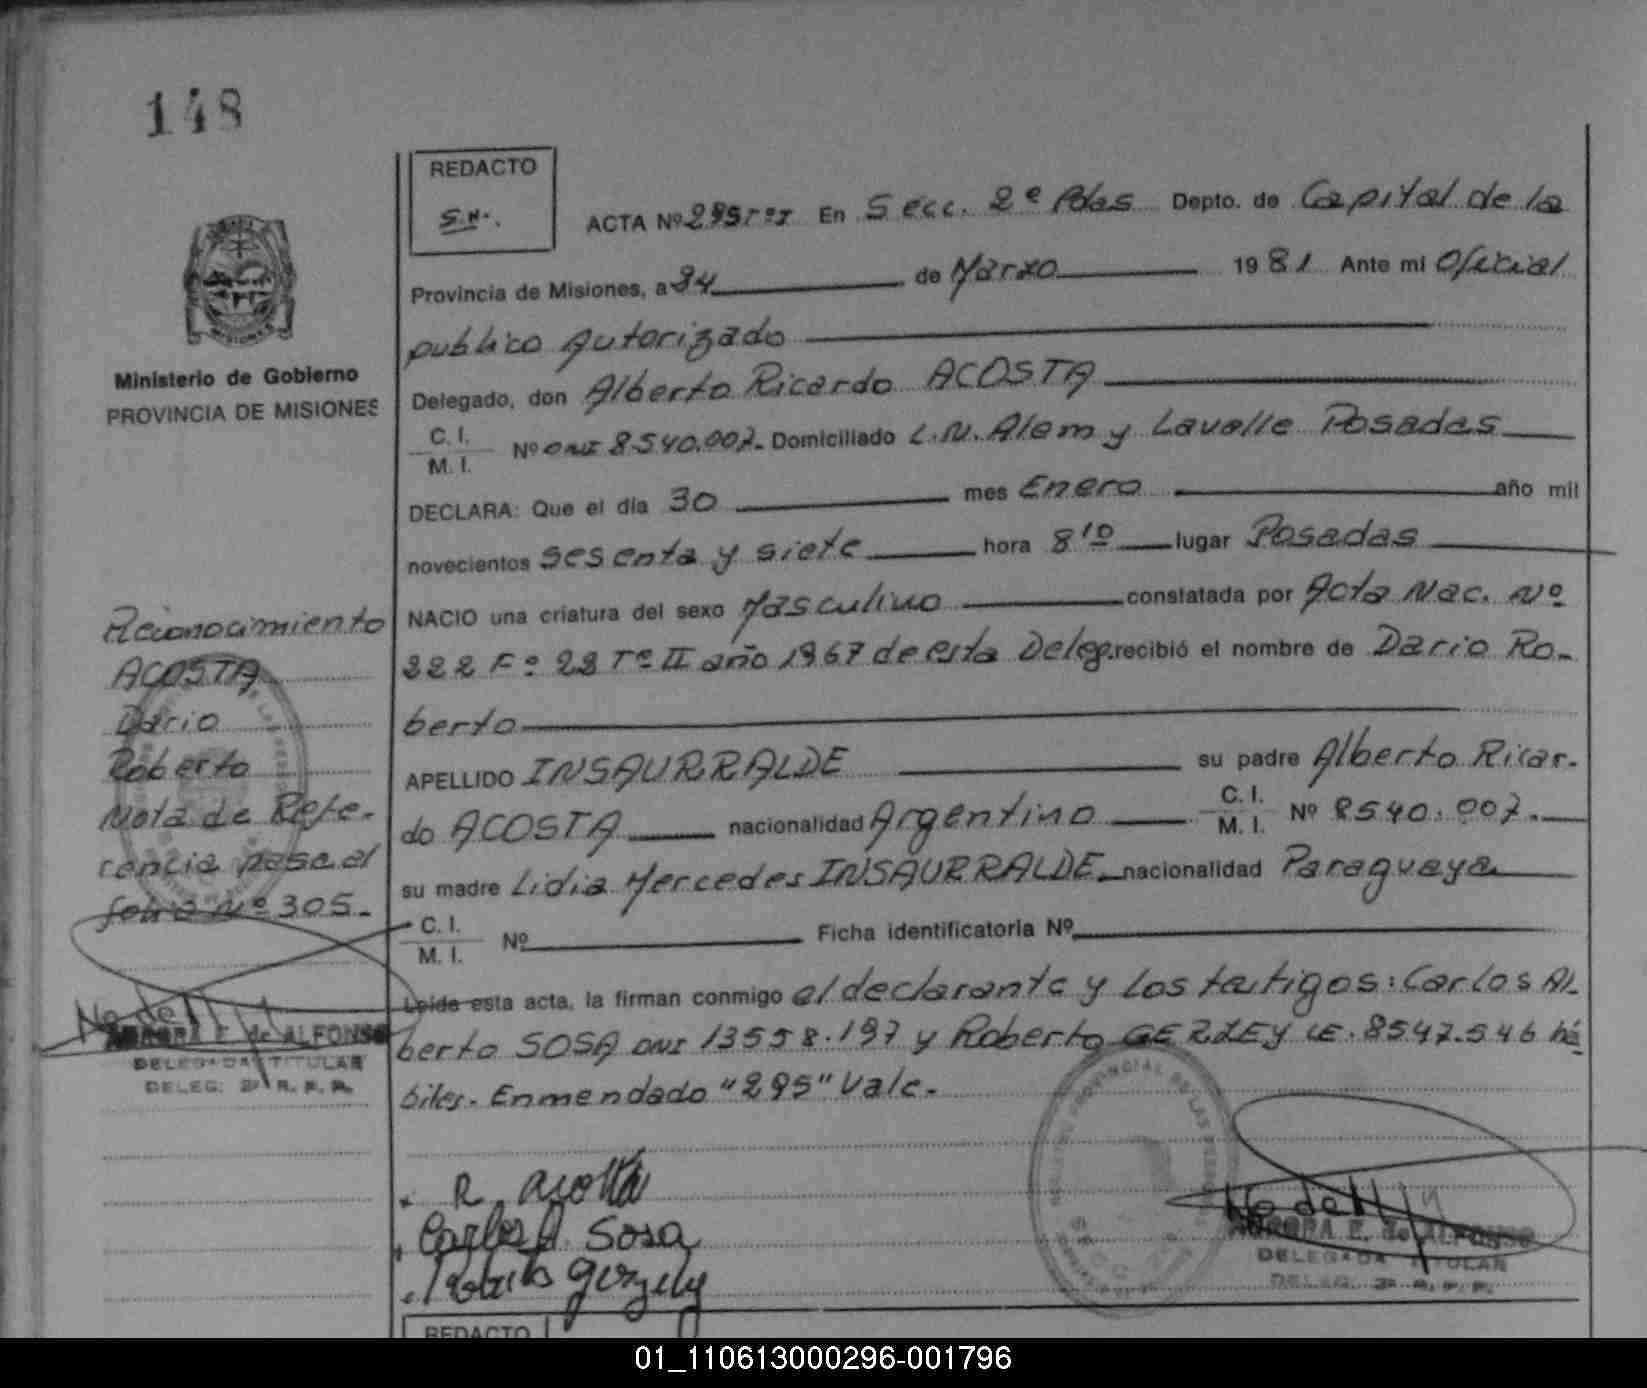 148
REDACTO
S.N.
ACTA Nº 295 Tº I En Secc. 2º Pdas Depto. de Capital de la
Provincia de Misiones, a 24 de Marzo 1981 Ante mi Oficial
publico Autorizado
Ministerio de Gobierno
PROVINCIA DE MISIONES
Delegado, don Alberto Ricardo ACOSTA
C. I.
M. I. Nº DNI 8540.007.- Domiciliado L.N. Alem y Lavalle Posadas
DECLARA: Que el día 30 mes Enero año mil
novecientos sesenta y siete hora 8'10 lugar Posadas
NACIO una criatura del sexo Masculino constatada por Acta Nac. Nº
222 Fº 22 Tº II año 1967 de esta Deleg. recibió el nombre de Dario Ro-
berto
APELLIDO INSAURRALDE su padre Alberto Ricar-
do ACOSTA nacionalidad Argentino C. I.
M. I. Nº 8540.007.-
su madre Lidia Mercedes INSAURRALDE nacionalidad Paraguaya
C. I.
M. I. Nº Ficha identificatoria Nº
Leida esta acta, la firman conmigo el declarante y los testigos: Carlos Al-
berto SOSA DNI 13558.197 y Roberto GERZEY LE. 8547.546 há-
biles. Enmendado "295" Vale.-
Reconocimiento
ACOSTA
Dario
Roberto
Nota de Refe-
rencia pasa al
folio Nº 305.-
AURORA E. de ALFONSO
DELEGADA TITULAR
DELEG: 2ª R. P. P.
R. Acosta
Carlos A. Sosa
Roberto Gerzey
REGISTRO PROVINCIAL DE LAS PERSONAS
AURORA E. de ALFONSO
DELEGADA TITULAR
DELEG. 2ª R. P. P.
REDACTO
01_110613000296-001796